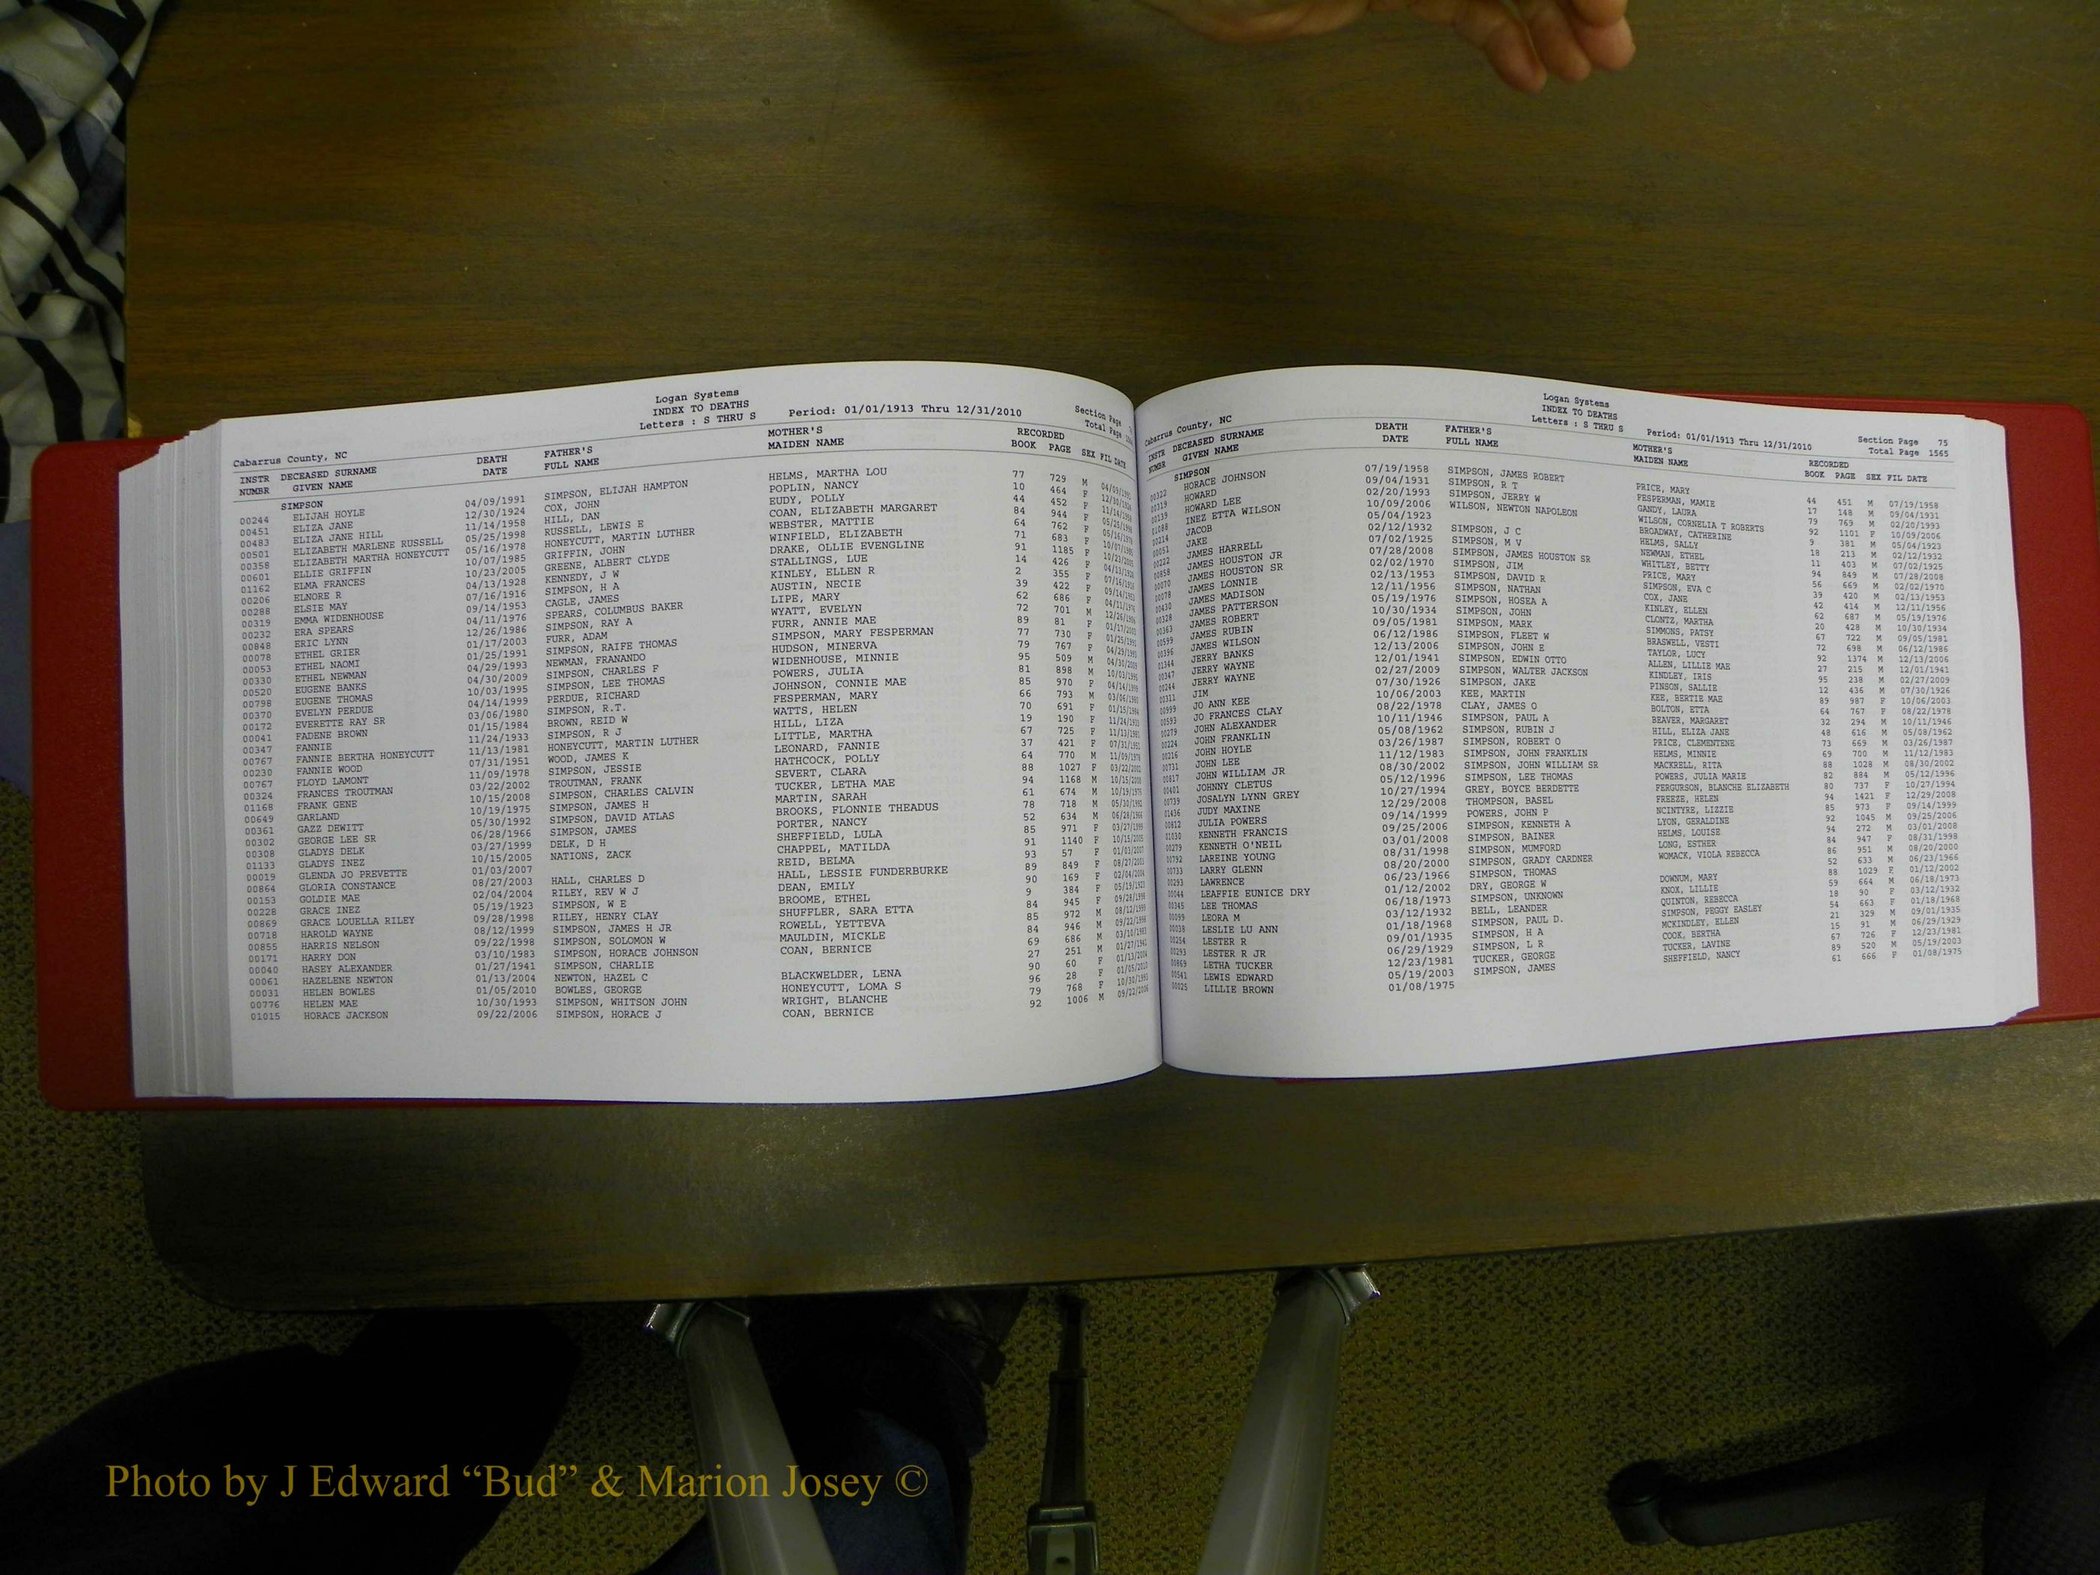 Logan Systems
INDEX TO DEATHS
Letters : S THRU S
Period: 01/01/1913 Thru 12/31/2010
Section Page
Total Page
Cabarrus County, NC
INSTR DECEASED SURNAME DEATH FATHER'S MOTHER'S RECORDED
NUMBR GIVEN NAME DATE FULL NAME MAIDEN NAME BOOK PAGE SEX FIL DATE
SIMPSON
00244 ELIJAH HOYLE 04/09/1991 SIMPSON, ELIJAH HAMPTON HELMS, MARTHA LOU 77 729 M 04/09/1991
00451 ELIZA JANE 12/30/1924 COX, JOHN POPLIN, NANCY 10 464 F 12/30/1924
00483 ELIZA JANE HILL 11/14/1958 HILL, DAN EUDY, POLLY 44 452 F 11/14/1958
00501 ELIZABETH MARLENE RUSSELL 05/25/1998 RUSSELL, LEWIS E COAN, ELIZABETH MARGARET 84 944 F 05/25/1998
00358 ELIZABETH MARTHA HONEYCUTT 05/16/1978 HONEYCUTT, MARTIN LUTHER WEBSTER, MATTIE 64 762 F 05/16/1978
00601 ELLIE GRIFFIN 10/07/1985 GRIFFIN, JOHN WINFIELD, ELIZABETH 71 683 F 10/07/1985
01162 ELMA FRANCES 10/23/2005 GREENE, ALBERT CLYDE DRAKE, OLLIE EVENGLINE 91 1185 F 10/23/2005
00206 ELNORE R 04/13/1928 KENNEDY, J W STALLINGS, LUE 14 426 F 04/13/1928
00288 ELSIE MAY 07/16/1916 SIMPSON, H A KINLEY, ELLEN R 2 355 F 07/16/1916
00319 EMMA WIDENHOUSE 09/14/1953 CAGLE, JAMES AUSTIN, NECIE 39 422 F 09/14/1953
00232 ERA SPEARS 04/11/1976 SPEARS, COLUMBUS BAKER LIPE, MARY 62 686 F 04/11/1976
00848 ERIC LYNN 12/26/1986 SIMPSON, RAY A WYATT, EVELYN 72 701 M 12/26/1986
00078 ETHEL GRIER 01/17/2003 FURR, ADAM FURR, ANNIE MAE 89 81 F 01/17/2003
00053 ETHEL NAOMI 01/25/1991 SIMPSON, RAIFE THOMAS SIMPSON, MARY FESPERMAN 77 730 F 01/25/1991
00330 ETHEL NEWMAN 04/29/1993 NEWMAN, FRANANDO HUDSON, MINERVA 79 767 F 04/29/1993
00520 EUGENE BANKS 04/30/2009 SIMPSON, CHARLES F WIDENHOUSE, MINNIE 95 509 M 04/30/2009
00798 EUGENE THOMAS 10/03/1995 SIMPSON, LEE THOMAS POWERS, JULIA 81 898 M 10/03/1995
00370 EVELYN PERDUE 04/14/1999 PERDUE, RICHARD JOHNSON, CONNIE MAE 85 970 F 04/14/1999
00172 EVERETTE RAY SR 03/06/1980 SIMPSON, R.T. FESPERMAN, MARY 66 793 M 03/06/1980
00041 FADENE BROWN 01/15/1984 BROWN, REID W WATTS, HELEN 70 691 F 01/15/1984
00347 FANNIE 11/24/1933 SIMPSON, R J HILL, LIZA 19 190 F 11/24/1933
00767 FANNIE BERTHA HONEYCUTT 11/13/1981 HONEYCUTT, MARTIN LUTHER LITTLE, MARTHA 67 725 F 11/13/1981
00230 FANNIE WOOD 07/31/1951 WOOD, JAMES K LEONARD, FANNIE 37 421 F 07/31/1951
00767 FLOYD LAMONT 11/09/1978 SIMPSON, JESSIE HATHCOCK, POLLY 64 770 M 11/09/1978
00324 FRANCES TROUTMAN 03/22/2002 TROUTMAN, FRANK SEVERT, CLARA 88 1027 F 03/22/2002
01168 FRANK GENE 10/15/2008 SIMPSON, CHARLES CALVIN TUCKER, LETHA MAE 94 1168 M 10/15/2008
00649 GARLAND 10/19/1975 SIMPSON, JAMES H MARTIN, SARAH 61 674 M 10/19/1975
00361 GAZZ DEWITT 05/30/1992 SIMPSON, DAVID ATLAS BROOKS, FLONNIE THEADUS 78 718 M 05/30/1992
00302 GEORGE LEE SR 06/28/1966 SIMPSON, JAMES PORTER, NANCY 52 634 M 06/28/1966
00308 GLADYS DELK 03/27/1999 DELK, D H SHEFFIELD, LULA 85 971 F 03/27/1999
01133 GLADYS INEZ 10/15/2005 NATIONS, ZACK CHAPPEL, MATILDA 91 1140 F 10/15/2005
00019 GLENDA JO PREVETTE 01/03/2007 REID, BELMA 93 57 F 01/03/2007
00864 GLORIA CONSTANCE 08/27/2003 HALL, CHARLES D HALL, LESSIE FUNDERBURKE 89 849 F 08/27/2003
00153 GOLDIE MAE 02/04/2004 RILEY, REV W J DEAN, EMILY 90 169 F 02/04/2004
00228 GRACE INEZ 05/19/1923 SIMPSON, W E BROOME, ETHEL 9 384 F 05/19/1923
00869 GRACE LOUELLA RILEY 09/28/1998 RILEY, HENRY CLAY SHUFFLER, SARA ETTA 84 945 F 09/28/1998
00718 HAROLD WAYNE 08/12/1999 SIMPSON, JAMES H JR ROWELL, YETTEVA 85 972 M 08/12/1999
00855 HARRIS NELSON 09/22/1998 SIMPSON, SOLOMON W MAULDIN, MICKLE 84 946 M 09/22/1998
00171 HARRY DON 03/10/1983 SIMPSON, HORACE JOHNSON COAN, BERNICE 69 686 M 03/10/1983
00040 HASEY ALEXANDER 01/27/1941 SIMPSON, CHARLIE 27 251 M 01/27/1941
00061 HAZELENE NEWTON 01/13/2004 NEWTON, HAZEL C BLACKWELDER, LENA 90 60 F 01/13/2004
00031 HELEN BOWLES 01/05/2010 BOWLES, GEORGE HONEYCUTT, LOMA S 96 28 F 01/05/2010
00776 HELEN MAE 10/30/1993 SIMPSON, WHITSON JOHN WRIGHT, BLANCHE 79 768 F 10/30/1993
01015 HORACE JACKSON 09/22/2006 SIMPSON, HORACE J COAN, BERNICE 92 1006 M 09/22/2006
Logan Systems
INDEX TO DEATHS
Letters : S THRU S
Period: 01/01/1913 Thru 12/31/2010
Section Page 75
Total Page 1565
Cabarrus County, NC
INSTR DECEASED SURNAME DEATH FATHER'S MOTHER'S RECORDED
NUMBR GIVEN NAME DATE FULL NAME MAIDEN NAME BOOK PAGE SEX FIL DATE
SIMPSON
00322 HORACE JOHNSON 07/19/1958 SIMPSON, JAMES ROBERT PRICE, MARY 44 451 M 07/19/1958
00319 HOWARD 09/04/1931 SIMPSON, R T FESPERMAN, MAMIE 17 148 M 09/04/1931
00139 HOWARD LEE 02/20/1993 SIMPSON, JERRY W GANDY, LAURA 79 769 M 02/20/1993
01088 INEZ ETTA WILSON 10/09/2006 WILSON, NEWTON NAPOLEON WILSON, CORNELIA T ROBERTS 92 1101 F 10/09/2006
00214 JACOB 05/04/1923 BROADWAY, CATHERINE 9 381 M 05/04/1923
00051 JAKE 02/12/1932 SIMPSON, J C HELMS, SALLY 18 213 M 02/12/1932
00222 JAMES HARRELL 07/02/1925 SIMPSON, M V NEWMAN, ETHEL 11 403 M 07/02/1925
00858 JAMES HOUSTON JR 07/28/2008 SIMPSON, JAMES HOUSTON SR WHITLEY, BETTY 94 849 M 07/28/2008
00070 JAMES HOUSTON SR 02/02/1970 SIMPSON, JIM PRICE, MARY 56 669 M 02/02/1970
00078 JAMES LONNIE 02/13/1953 SIMPSON, DAVID R SIMPSON, EVA C 39 420 M 02/13/1953
00430 JAMES MADISON 12/11/1956 SIMPSON, NATHAN COX, JANE 42 414 M 12/11/1956
00328 JAMES PATTERSON 05/19/1976 SIMPSON, HOSEA A KINLEY, ELLEN 62 687 M 05/19/1976
00363 JAMES ROBERT 10/30/1934 SIMPSON, JOHN CLONTZ, MARTHA 20 428 M 10/30/1934
00599 JAMES RUBIN 09/05/1981 SIMPSON, MARK SIMMONS, PATSY 67 722 M 09/05/1981
00396 JAMES WILSON 06/12/1986 SIMPSON, FLEET W BRASWELL, VESTI 72 698 M 06/12/1986
01344 JERRY BANKS 12/13/2006 SIMPSON, JOHN E TAYLOR, LUCY 92 1374 M 12/13/2006
00347 JERRY WAYNE 12/01/1941 SIMPSON, EDWIN OTTO ALLEN, LILLIE MAE 27 215 M 12/01/1941
00244 JERRY WAYNE 02/27/2009 SIMPSON, WALTER JACKSON KINDLEY, IRIS 95 238 M 02/27/2009
00311 JIM 07/30/1926 SIMPSON, JAKE PINSON, SALLIE 12 436 M 07/30/1926
00999 JO ANN KEE 10/06/2003 KEE, MARTIN KEE, BERTIE MAE 89 987 F 10/06/2003
00593 JO FRANCES CLAY 08/22/1978 CLAY, JAMES O BOLTON, ETTA 64 767 F 08/22/1978
00279 JOHN ALEXANDER 10/11/1946 SIMPSON, PAUL A BEAVER, MARGARET 32 294 M 10/11/1946
00224 JOHN FRANKLIN 05/08/1962 SIMPSON, RUBIN J HILL, ELIZA JANE 48 616 M 05/08/1962
00216 JOHN HOYLE 03/26/1987 SIMPSON, ROBERT O PRICE, CLEMENTENE 73 669 M 03/26/1987
00731 JOHN LEE 11/12/1983 SIMPSON, JOHN FRANKLIN HELMS, MINNIE 69 700 M 11/12/1983
00817 JOHN WILLIAM JR 08/30/2002 SIMPSON, JOHN WILLIAM SR MACKRELL, RITA 88 1028 M 08/30/2002
00401 JOHNNY CLETUS 05/12/1996 SIMPSON, LEE THOMAS POWERS, JULIA MARIE 82 884 M 05/12/1996
00739 JOSALYN LYNN GREY 10/27/1994 GREY, BOYCE BERDETTE FERGURSON, BLANCHE ELIZABETH 80 737 F 10/27/1994
01436 JUDY MAXINE 12/29/2008 THOMPSON, BASEL FREEZE, HELEN 94 1421 F 12/29/2008
00812 JULIA POWERS 09/14/1999 POWERS, JOHN P MCINTYRE, LIZZIE 85 973 F 09/14/1999
01030 KENNETH FRANCIS 09/25/2006 SIMPSON, KENNETH A LYON, GERALDINE 92 1045 M 09/25/2006
00279 KENNETH O'NEIL 03/01/2008 SIMPSON, BAINER HELMS, LOUISE 94 272 M 03/01/2008
00792 LAREINE YOUNG 08/31/1998 SIMPSON, MUMFORD LONG, ESTHER 84 947 F 08/31/1998
00733 LARRY GLENN 08/20/2000 SIMPSON, GRADY CARDNER WOMACK, VIOLA REBECCA 86 951 M 08/20/2000
00293 LAWRENCE 06/23/1966 SIMPSON, THOMAS 52 633 M 06/23/1966
00044 LEAFFIE EUNICE DRY 01/12/2002 DRY, GEORGE W DOWNUM, MARY 88 1029 F 01/12/2002
00345 LEE THOMAS 06/18/1973 SIMPSON, UNKNOWN KNOX, LILLIE 59 664 M 06/18/1973
00099 LEORA M 03/12/1932 BELL, LEANDER QUINTON, REBECCA 18 90 F 03/12/1932
00038 LESLIE LU ANN 01/18/1968 SIMPSON, PAUL D. SIMPSON, PEGGY EASLEY 54 663 F 01/18/1968
00254 LESTER R 09/01/1935 SIMPSON, H A MCKINDLEY, ELLEN 21 329 M 09/01/1935
00293 LESTER R JR 06/29/1929 SIMPSON, L R COOK, BERTHA 15 91 M 06/29/1929
00869 LETHA TUCKER 12/23/1981 TUCKER, GEORGE TUCKER, LAVINE 67 726 F 12/23/1981
00541 LEWIS EDWARD 05/19/2003 SIMPSON, JAMES SHEFFIELD, NANCY 89 520 M 05/19/2003
00025 LILLIE BROWN 01/08/1975 61 666 F 01/08/1975
Photo by J Edward “Bud” & Marion Josey ©